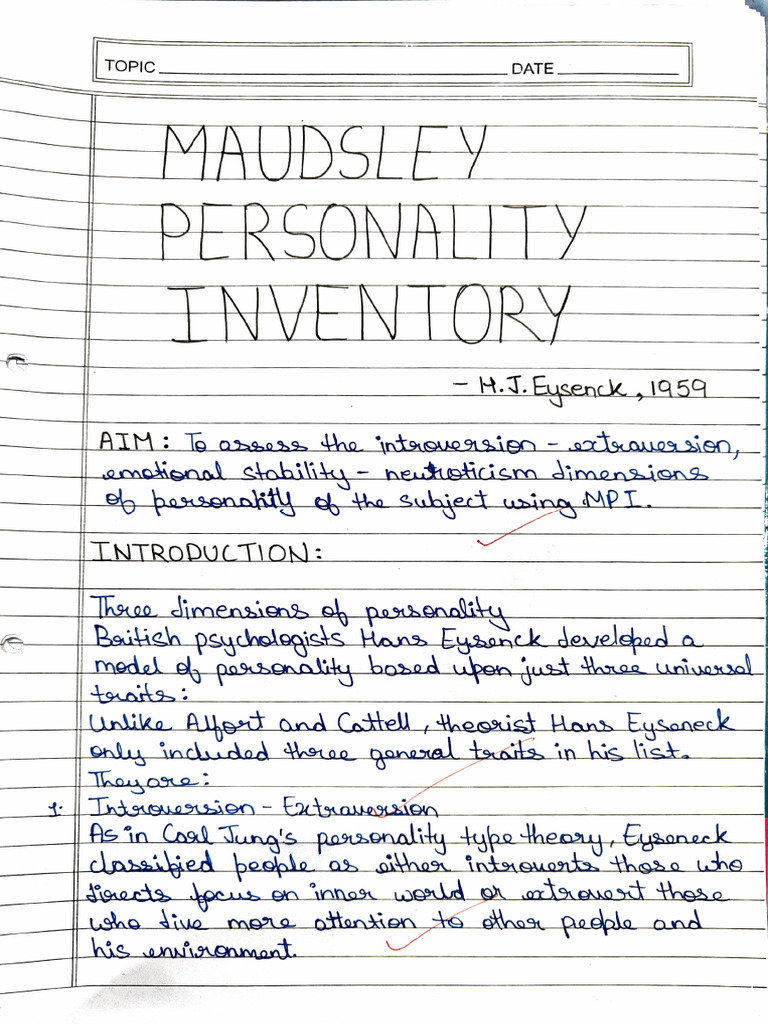 TOPIC DATE
MAUDSLEY
PERSONALITY
INVENTORY
- H.J. Eysenck, 1959
AIM: To assess the introversion - extraversion,
emotional stability - neuroticism dimensions
of personality of the subject using MPI.
INTRODUCTION:
Three dimensions of personality
British psychologists Hans Eysenck developed a
model of personality based upon just three universal
traits:
Unlike Alfort and Cattell, theorist Hans Eyseneck
only included three general traits in his list.
They are:
1. Introversion - Extraversion
As in Carl Jung's personality type theory, Eyseneck
classified people as either introverts those who
directs focus on inner world or extrovert those
who dive more attention to other people and
his environment.